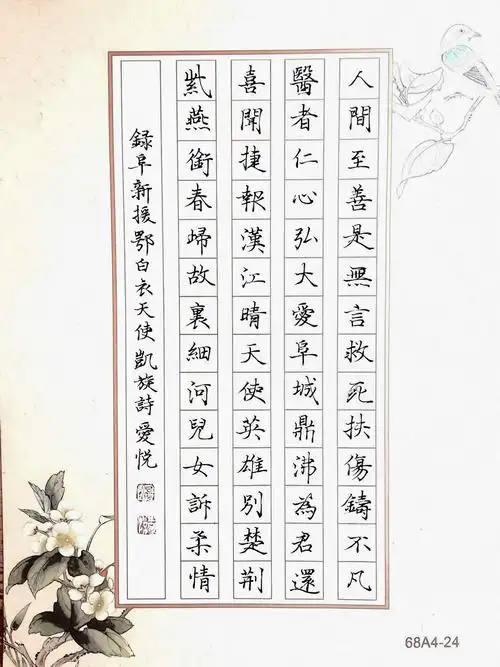 人間至善是無言救死扶傷鑄不凡
醫者仁心弘大愛阜城鼎沸為君還
喜聞捷報漢江晴天使英雄別楚荊
紫燕銜春歸故裏細河兒女訴柔情
録阜新援鄂白衣天使凱旋詩愛悦
68A4-24